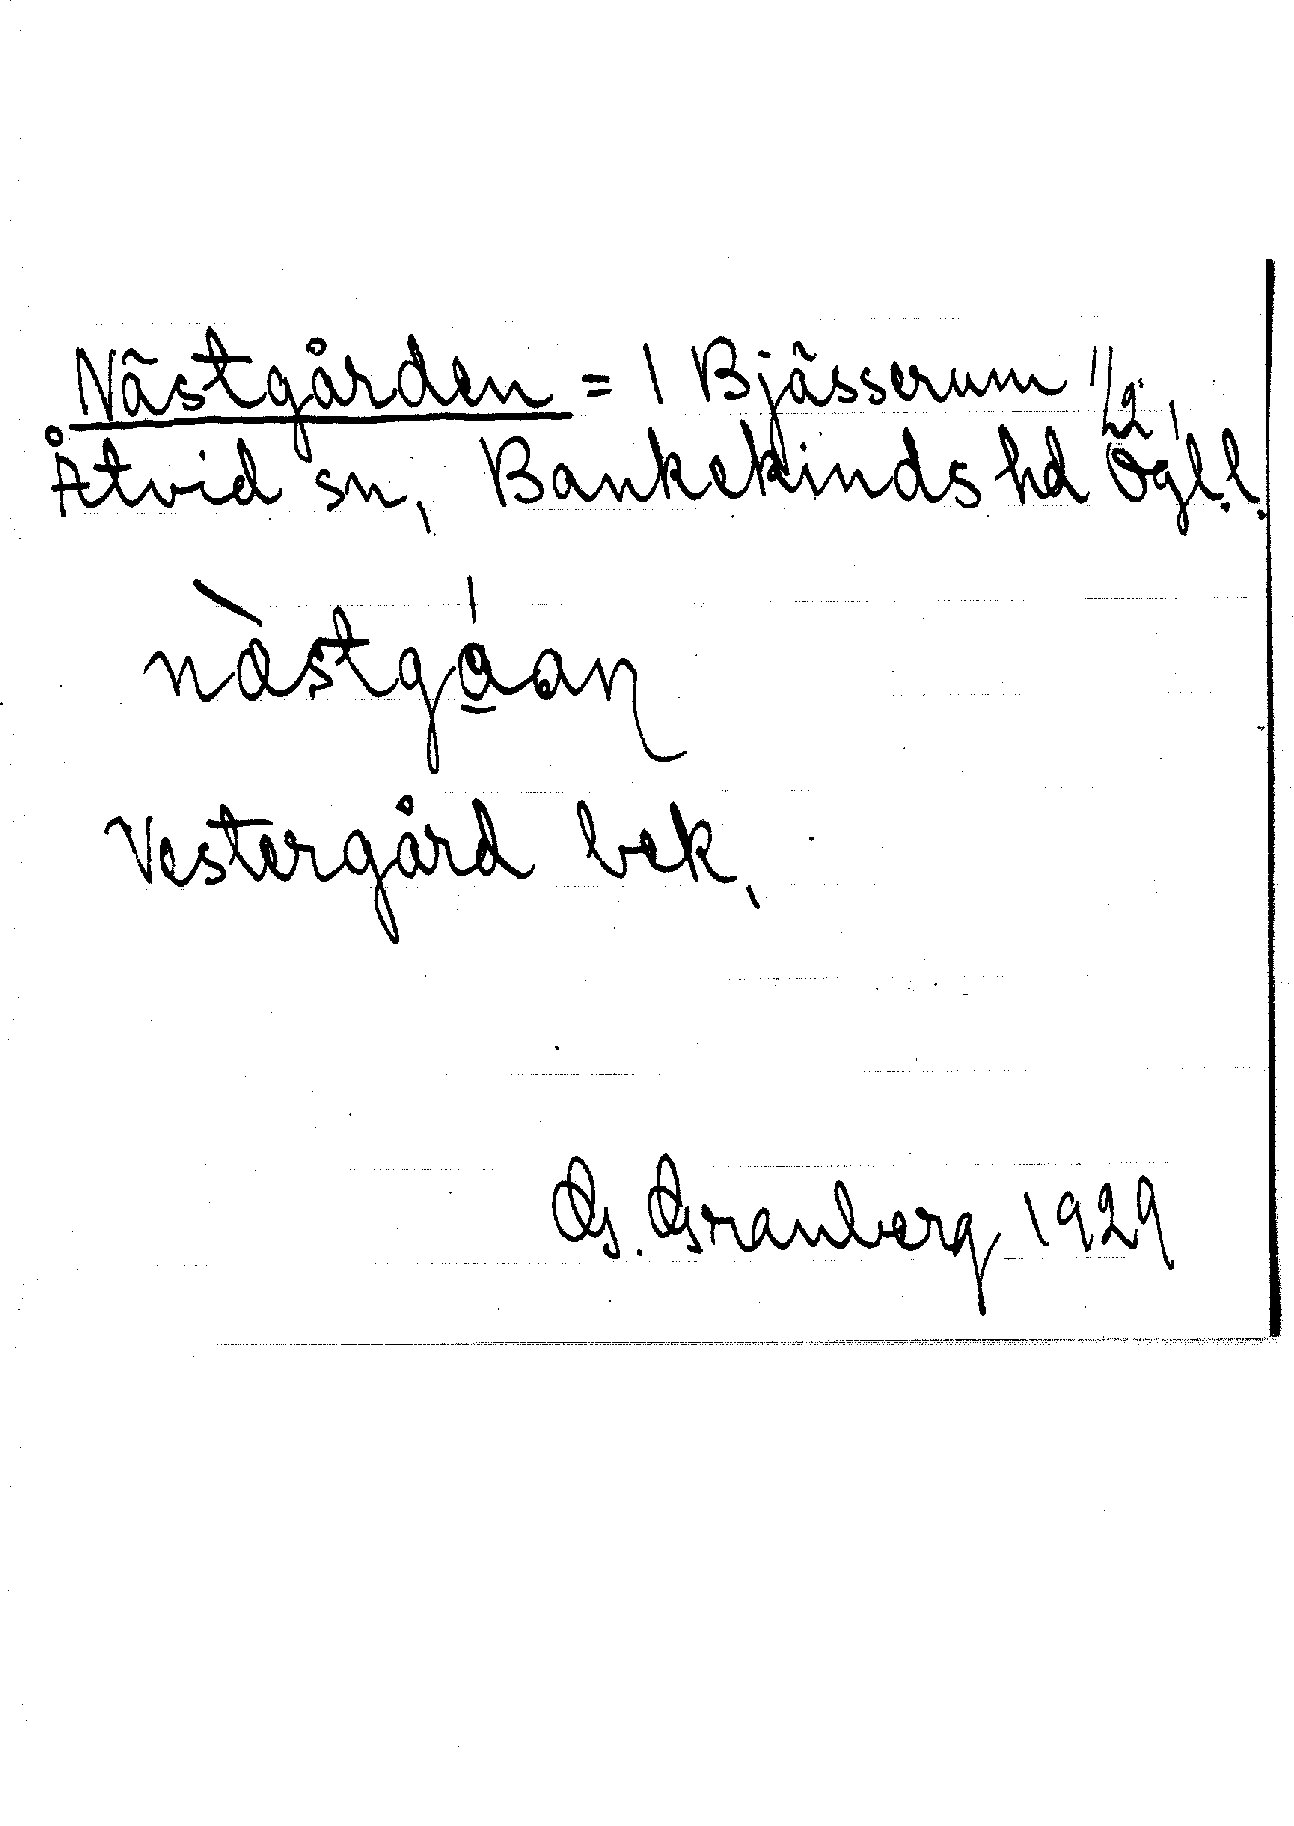 Nästgården = 1 Bjässerum 1/2,
Åtvid sn, Bankekinds hd Ögl.l.
nàstgó̲an
Vestergård bek,
G. Granberg 1929